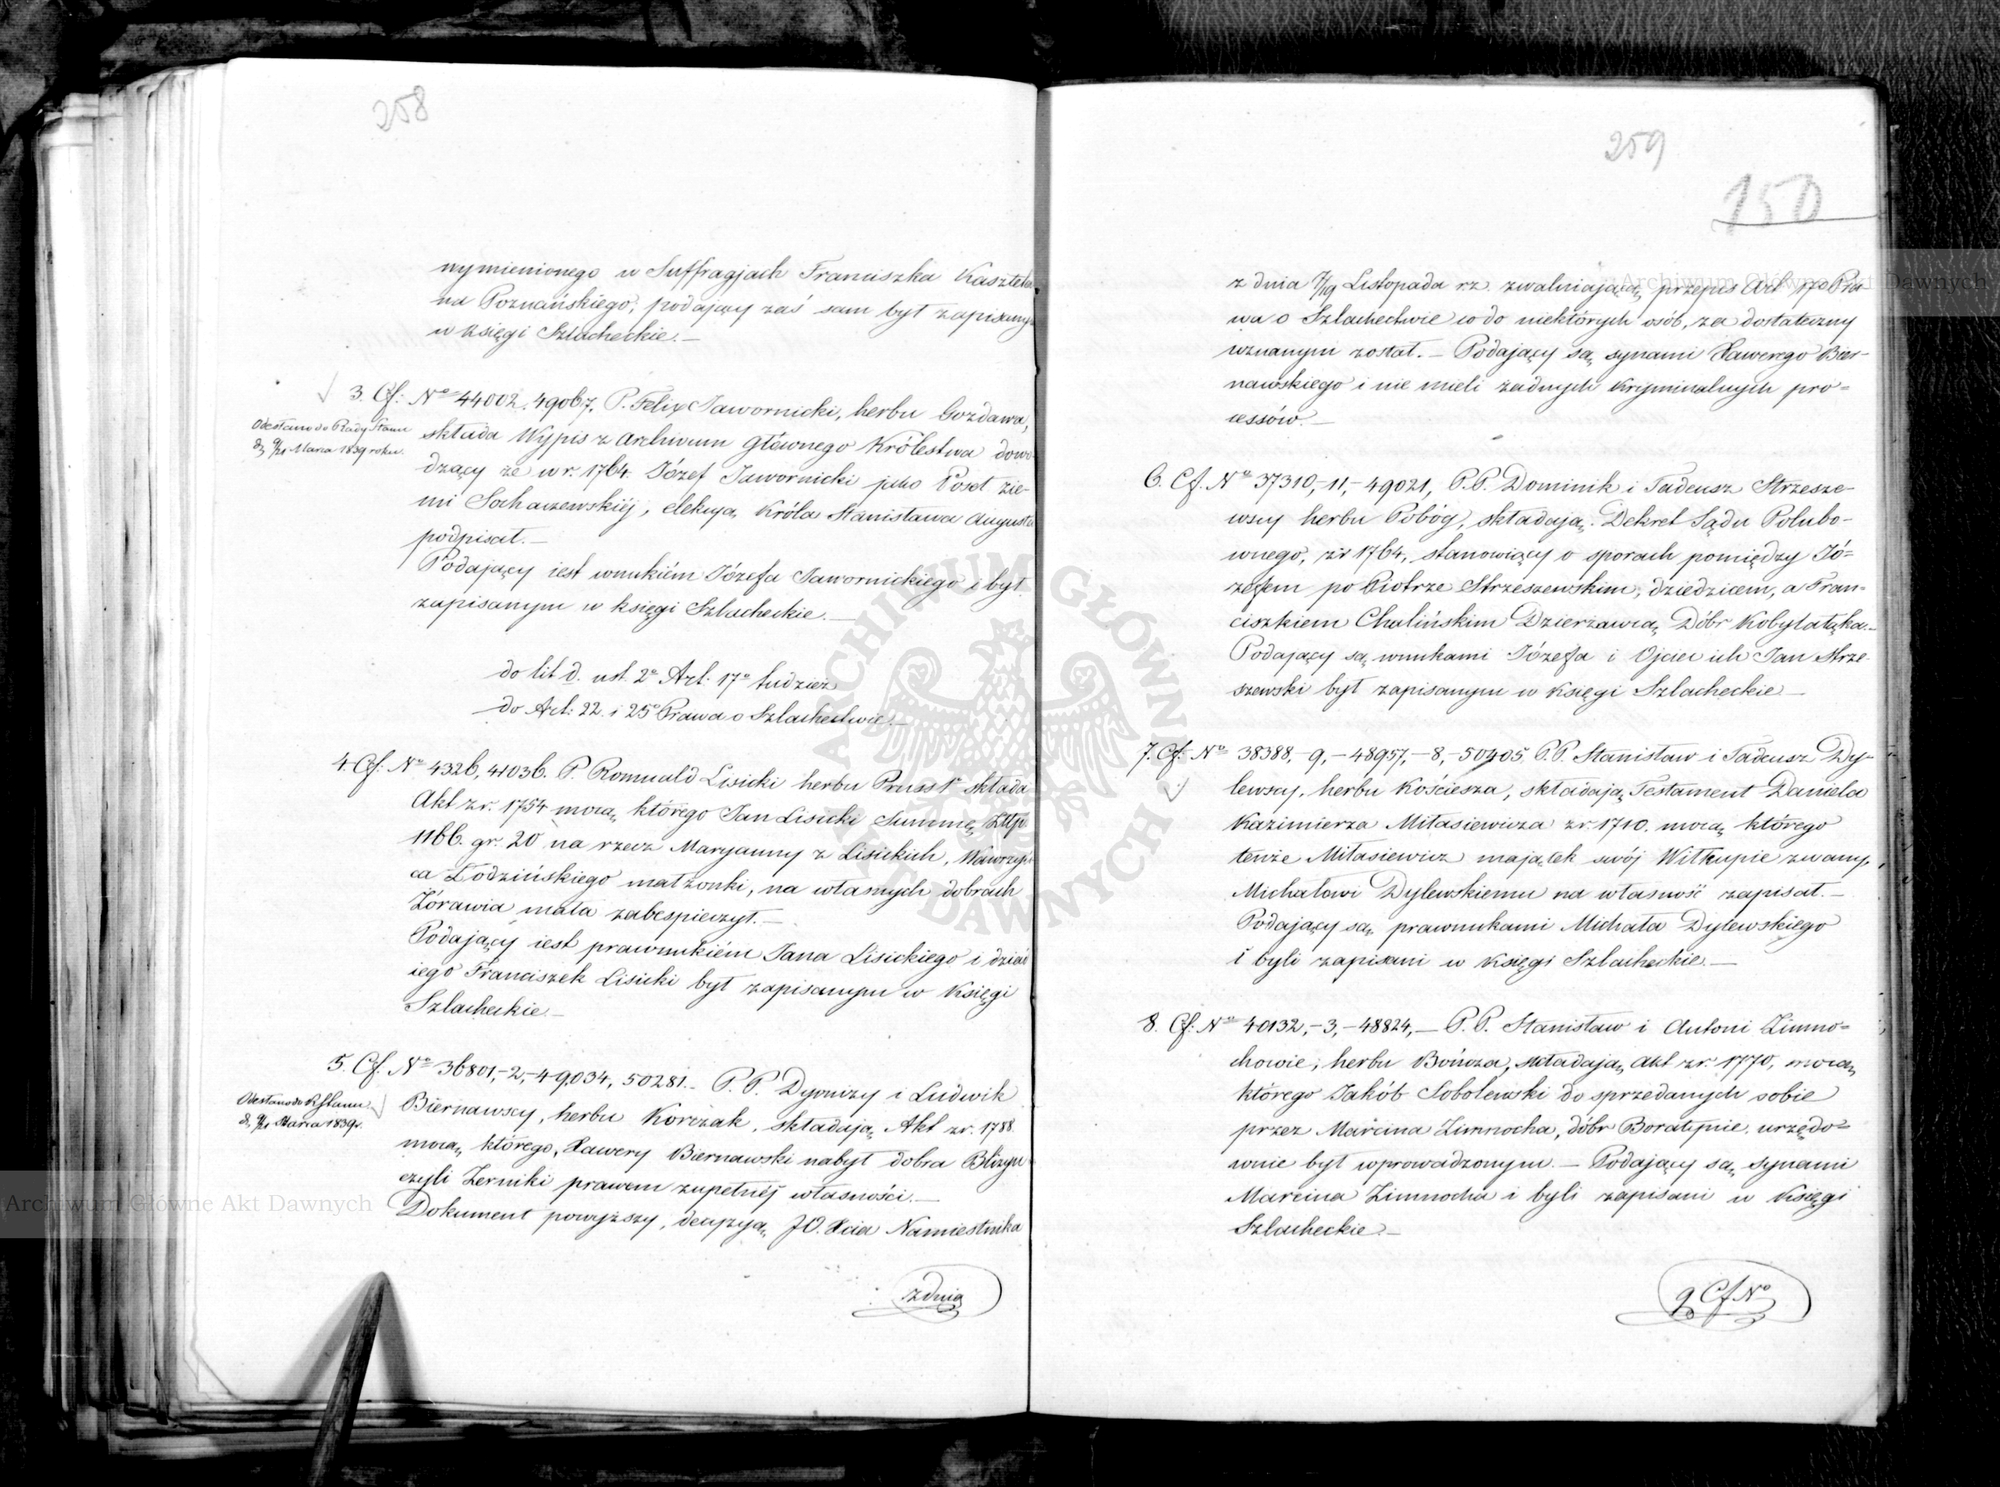 258
wymienionego w Suffragjach Franciszka Kasztela-
na Poznańskiego, podający zaś sam był zapisany
w księgi Szlacheckie.—
3. Cf: No 44002, 49067, P. Felix Jawornicki, herbu Gozdawa,
Odesłano do Rady Stanu
d. 9/21 Marca 1839 roku.
składa Wypis z Archiwum Głównego Królestwa dowo-
dzący że w r. 1764 Józef Jawornicki jako Poseł zie-
mi Sochaczewskiéj, elekcyą Króla Stanisława Augusta
podpisał.—
Podający iest wnukiém Józefa Jawornickiego i był
zapisanym w księgi Szlacheckie.—
do lit d. ust. 2o Art. 17o tudzież
do Art: 22. i 25o Prawa o Szlachectwie.—
4. Cf: No 4326, 41036. P. Romuald Lisicki herbu Pruss 1o składa
Akt z r. 1754 mocą którego Jan Lisicki Summę Złtp
1166. gr. 20 na rzecz Maryanny z Lisickich, Wawrzyń-
ca Łodzińskiego małżonki, na własnych dobrach
Żórawia mała zabespieczył.—
Podający iest prawnukiém Jana Lisickiego i dziad
iego Franciszek Lisicki był zapisanym w Księgi
Szlacheckie.—
5. Cf. No 36801,-2,-49034, 50281.- P. P. Dyonizy i Ludwik
Odesłano do R. Stanu
d. 9/21 Marca 1839 r.
Biernawscy, herbu Korczak, składają Akt z r. 1788.
mocą którego, Xawery Biernawski nabył dobra Bliżyn
czyli Zerniki prawem zupełnéj własności.—
Dokument powyższy, decyzyą JO. Xcia Namiestnika
z dnia
259
150
z dnia 7/19 Listopada r z. zwalniającą przepis Art. 17o Pra-
wa o Szlachectwie co do niektórych osób, za dostateczny
uznanym został.— Podający są synami Xawerego Bier-
nawskiego i nie mieli żadnych kryminalnych pro-
cessów.—
6. Cf. No 37310,-11,-49021, P. P. Dominik i Tadeusz Strzesze-
wscy herbu Pobóg, składają Dekret Sądu Polubo-
wnego, z r 1764, stanowiący o sporach pomiędzy Jó-
zefem po Piotrze Strzeszewskim, dziedzicem, a Fran-
ciszkiem Chalińskim Dzierżawcą Dóbr Kobylałąka.—
Podający są wnukami Józefa i Ojciec ich Jan Strze-
szewski był zapisanym w Księgi Szlacheckie.—
7. Cf: No 38388,-9,-48957,-8,-50405, P. P. Stanisław i Tadeusz Dy-
lewscy, herbu Kościesza, składają Testament Daniela
Kazimierza Miłasiewicza z r. 1710. mocą którego
tenże Miłasiewicz majątek swój Witkupie zwany,
Michałowi Dylewskiemu na własność zapisał.—
Podający są prawnukami Michała Dylewskiego
i byli zapisani w Księgi Szlacheckie.—
8. Cf: No 40132,-3,-48824,— P. P. Stanisław i Antoni Zimno-
chowie, herbu Bończa, składają Akt z r. 1770, mocą
którego Jakób Sobolewski do sprzedanych sobie
przez Marcina Zimnocha, dóbr Boratynie urzędo-
wnie był wprowadzonym.— Podający są synami
Marcina Zimnocha i byli zapisani w Księgi
Szlacheckie.—
9 Cf No
Archiwum Główne Akt Dawnych
Archiwum Główne Akt Dawnych
ARCHIWUM GŁÓWNE AKT DAWNYCH